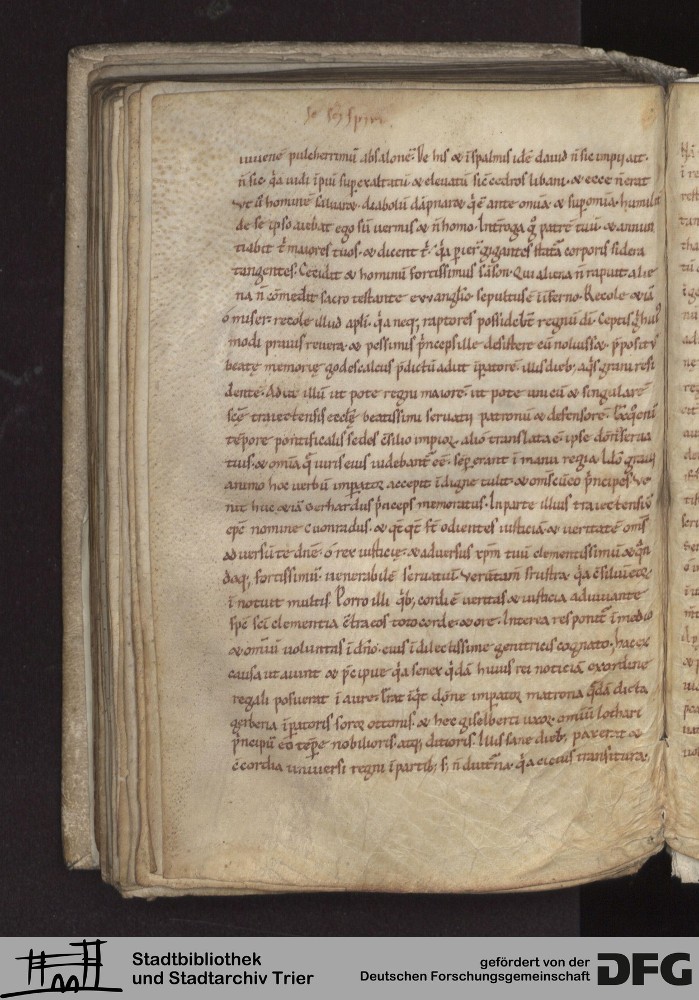 iuuenē pulcherrimū absalonē. De his & ī spalmis idē dauid ñ sic impii ait.
ñ sic. q̃a uidi īpiū supexaltatū & eleuatū sic̄ cedros libani. & ecce ñ erat
hominē saluar& diabolū dāpnar& qē ante omīa & sup omīa humilit̄
de se ipso aiebat ego sū uermis & ñ homo. Int̄roga g̊ patrē tuū & annun
tiabit t̄ maiores tuos. & dicent t̄. gigantes statu corporis sidera
tangentes. Cecidit & hominū fortissimus sāson. Qui aliena ñ rapuit alie
na ñ cōmedit sacro testante euuanglio sepultus ē īferno. Recole & iā
o miser. recole illud apłi. q̃a neq; raptores possidebt̄ regnū dī. Ceptis g̊ hui᾽
modi prauis reuera & pessimis p̄nceps ille desistere cū noluiss&. p̄posit᾽
beatę memorię godescalcus p̄dictū adiit īpatorē illis dieb; aq̄s grani resi
dente. Adiit illū ut pote regni maiorē. ut pote unicū & singularē
scē traiectensis ecclę beatissimi seruatii patronū & defensorē.
tēpore pontificalis sedes c̄silio impior̄. alio translata ē. ipse dom̄ serua
tius. & omīa q̄ iuris eius uidebant̄ eē. sep̄ erant ī manu regia. Id
animo hoc uerbū imperator accepit īdigne tulit & om̄s p̄ncipes ue
nit huc & iā Gerhardus p̄nceps memoratus. In parte illius traiectensiū
epc̄ nomine Cuonradus. & qt̄qt̄ st̄ odientes iusticiā & ueritatē om̄s
aduersū te dnē. ó rex iusticię. & aduersus xp̄m tuū clementissimū & q̄n
doq; fortissimū. uenerabilē seruatiū. Ver̄utam̄ frustra q̃a c̄siliū eor̄
ī notuit multis. Porro illi q̄b; cordi ē ueritas & iusticia adiuuante
spc̄ scī clementia c̄tra eos toto corde & ore. Interea respont̄ ī medio
& omniū uoluntas ī dn̄o. eius ī dilectissime genitricis cognato; hac ex
causa ut aiunt & p̄cipue q̃a senex q̃dā huius rei noticiā ex ordine
regali posuerat ī aure. Erat īq̄t dōne imperator matrona q̃dā dicta
gerberia īpatoris soror ottonis. & hęc giselberti uxor. omiū lothari
p̄ncipū eo tēp̄e nobilioris. atq; ditioris. Illis sane dieb; pax erat &
c̄cordia uniuersi regni ī partib; s; ñ diut̄na. q̃a citius transitura.
Stadtbibliothek
und Stadtarchiv Trier
gefördert von der
Deutschen Forschungsgemeinschaft
DFG